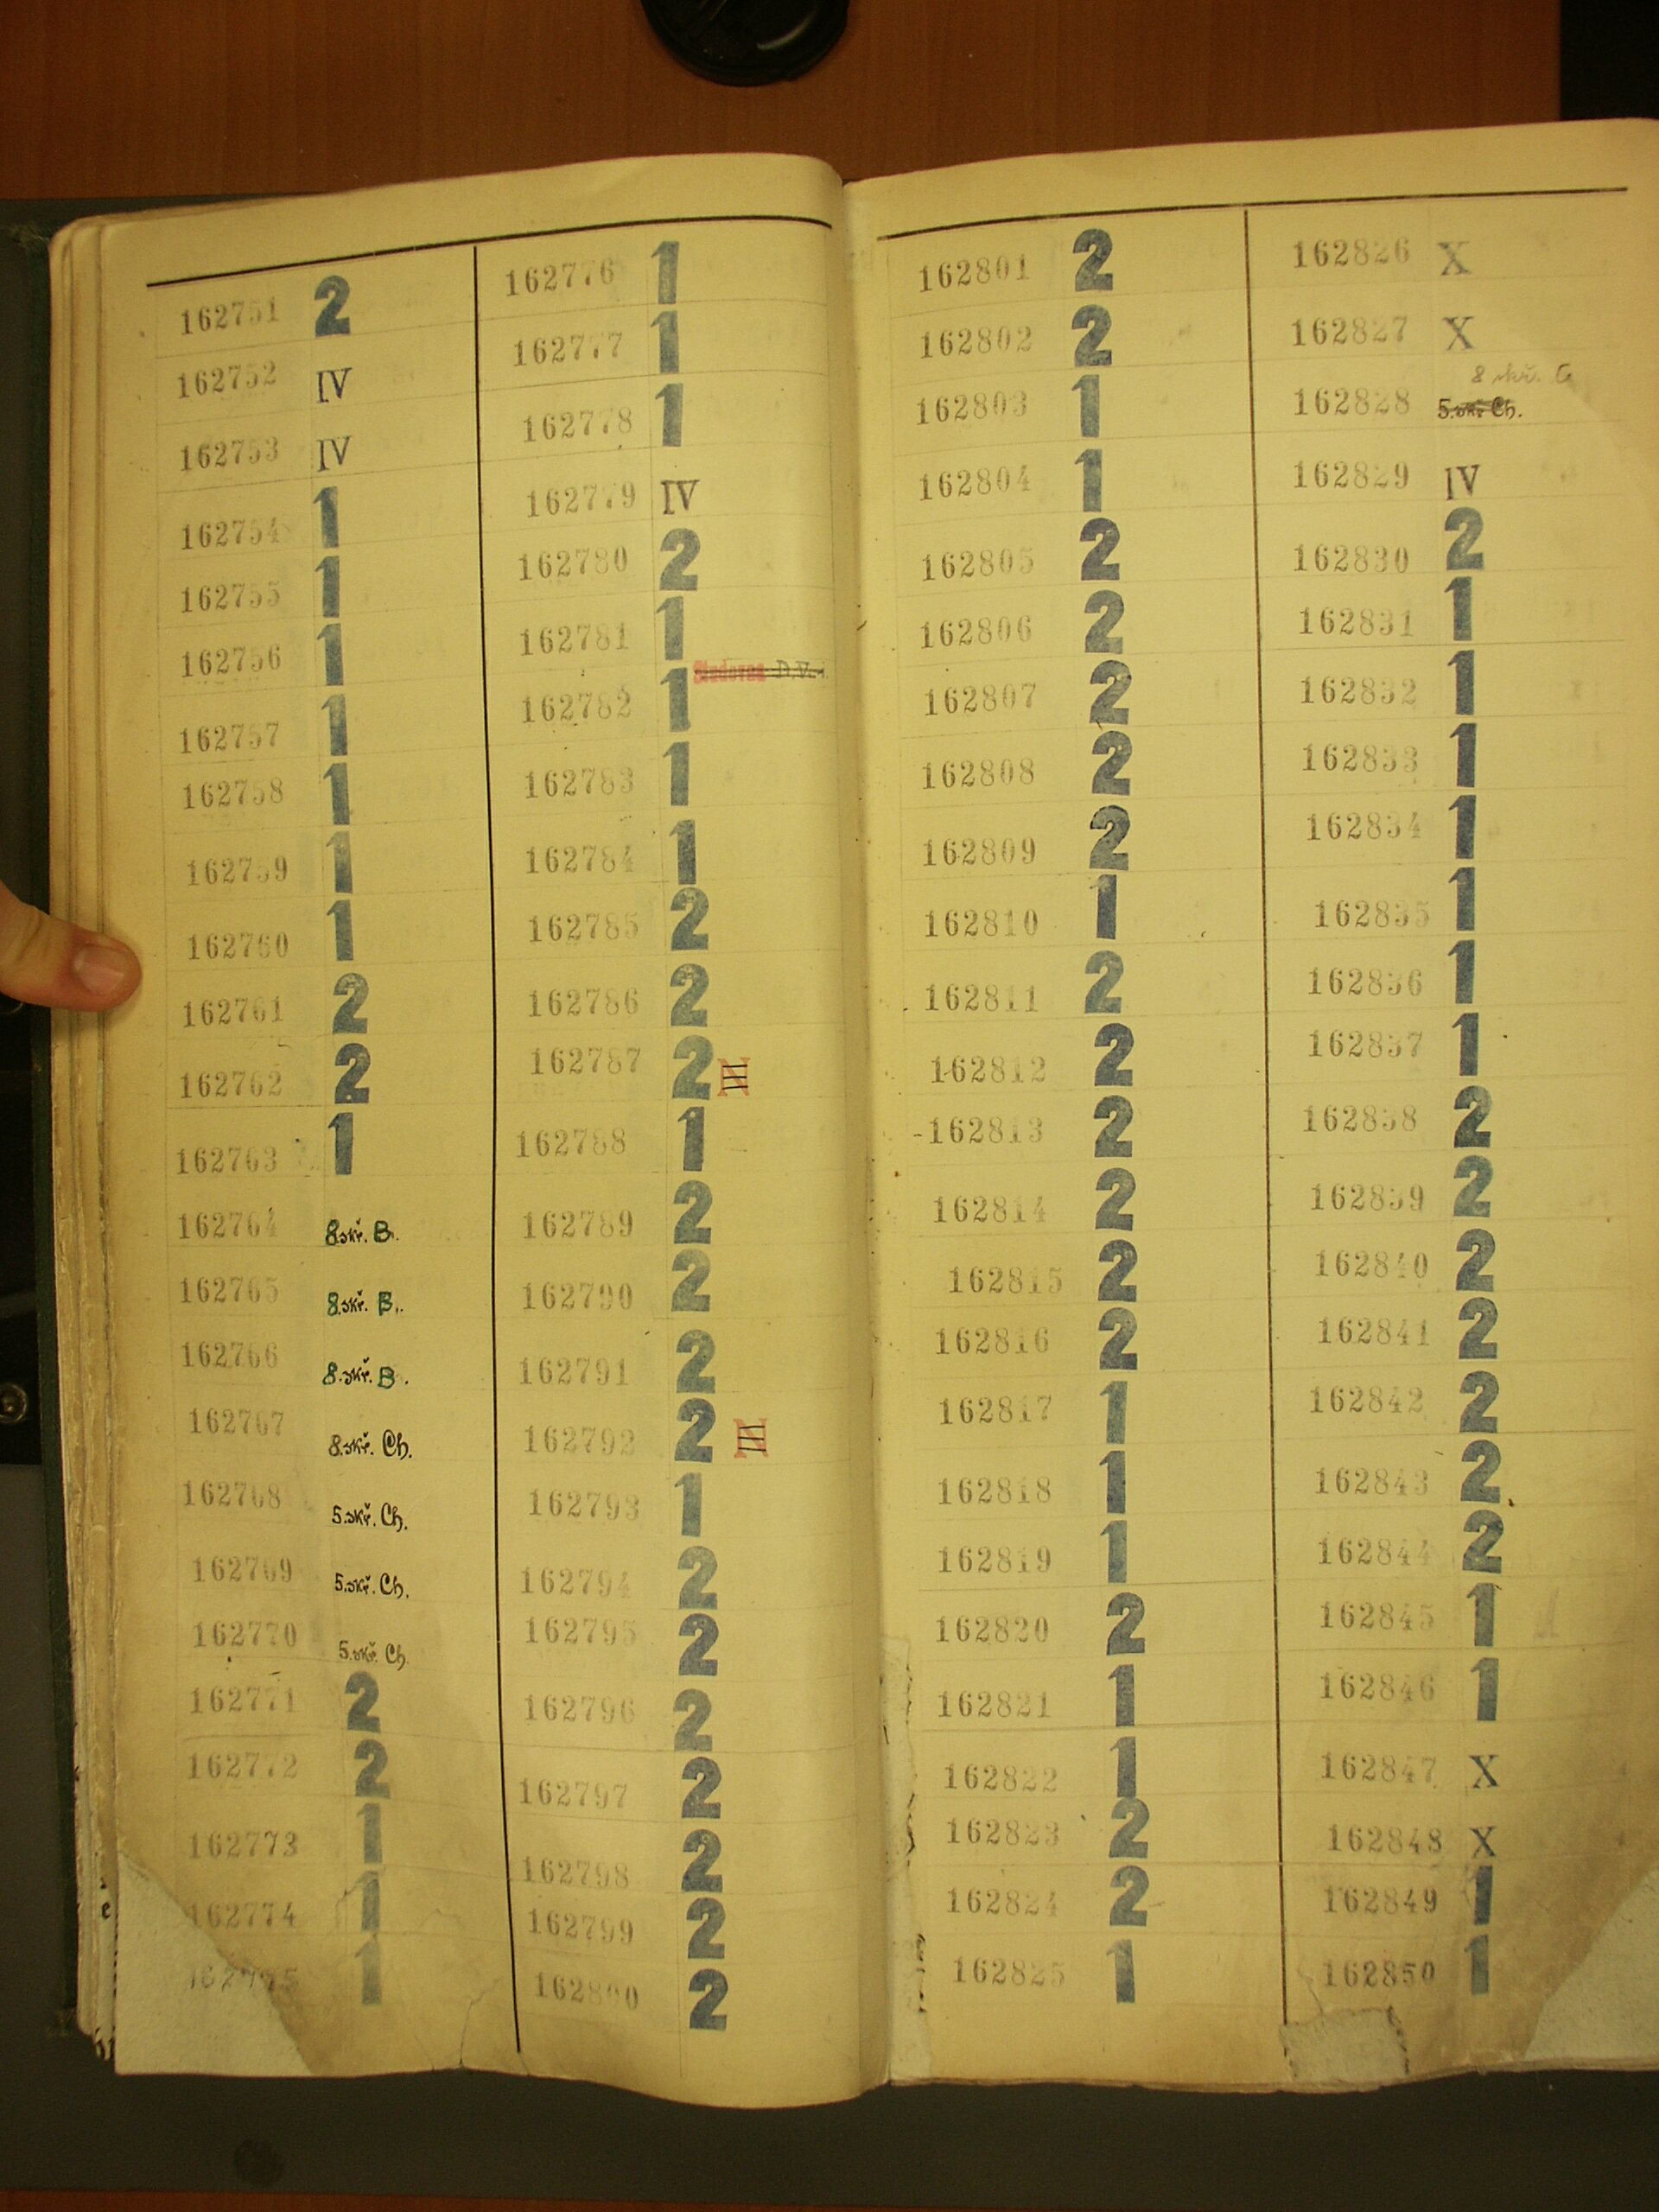 162751 2
162752 IV
162753 IV
162754 1
162755 1
162756 1
162757 1
162758 1
162759 1
162760 1
162761 2
162762 2
162763 1
162764 8.skř. B.
162765 8.skř. B.
162766 8.skř. B.
162767 8.skř. Ch.
162768 5.skř. Ch.
162769 5.skř. Ch.
162770 5.skř. Ch.
162771 2
162772 2
162773 1
162774 1
162775 1
162776 1
162777 1
162778 1
162779 IV
162780 2
162781 1
Studovna D.V.
162782 1
162783 1
162784 1
162785 2
162786 2
162787 2
162788 1
162789 2
162790 2
162791 2
162792 2
162793 1
162794 2
162795 2
162796 2
162797 2
162798 2
162799 2
162800 2
162801 2
162802 2
162803 1
162804 1
162805 2
162806 2
162807 2
162808 2
162809 2
162810 1
162811 2
162812 2
162813 2
162814 2
162815 2
162816 2
162817 1
162818 1
162819 1
162820 2
162821 1
162822 1
162823 2
162824 2
162825 1
162826 X
162827 X
8 skř. C
162828 5.skř Ch.
162829 IV
162830 2
162831 1
162832 1
162833 1
162834 1
162835 1
162836 1
162837 1
162838 2
162839 2
162840 2
162841 2
162842 2
162843 2
162844 2
162845 1
162846 1
162847 X
162848 X
162849 1
162850 1